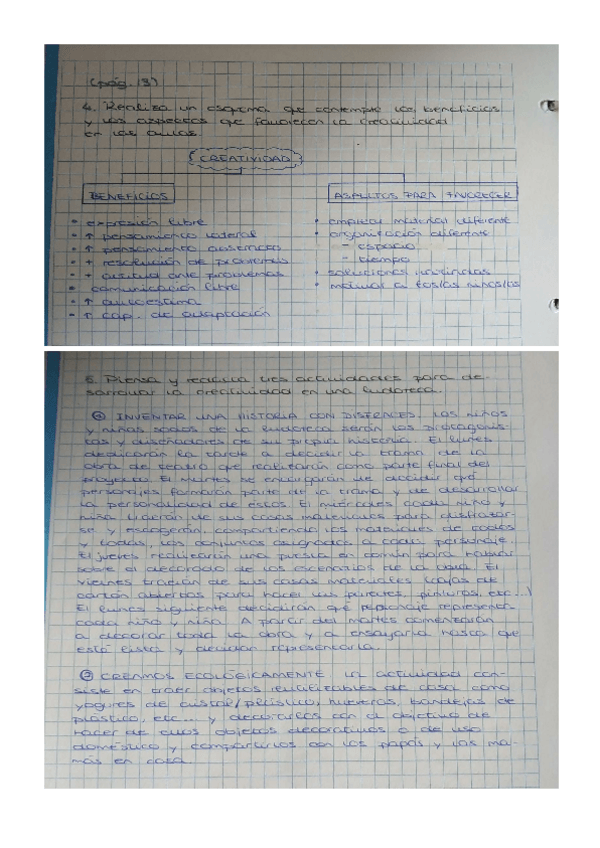 (pág. 13)
4. Realiza un esquema que contemple los beneficios
y los aspectos que favorecen la creatividad
en las aulas.
CREATIVIDAD
BENEFICIOS
• expresión libre
• ↑ pensamiento lateral
• ↑ pensamiento
• + resolución de problemas
• + actitud ante problemas
• comunicación libre
• ↑ autoestima
• ↑ cap. de adaptación
ASPECTOS PARA FAVORECER
• emplear material diferente
• organización diferente
- espacio
- tiempo
• soluciones
• motivar a los/as niños/as
5. Piensa y realiza tres actividades para de-
sarrollar la creatividad en una ludoteca.
① INVENTAR UNA HISTORIA CON DISFRACES. Los niños
y niñas socios de la ludoteca serán los protagonis-
tas y diseñadores de su propia historia. El lunes
dedicarán la tarde a decidir la trama de la
obra de teatro que realizarán como parte final del
proyecto. El martes se encargarán de decidir qué
personajes formarán parte de la trama y de desarrollar
la personalidad de éstos. El miércoles cada niño y
niña traerán de sus casas materiales para disfrazar-
se y escogerán, compartiendo los materiales de todos
y todas, los conjuntos asignados a cada personaje.
El jueves realizarán una puesta en común para hablar
sobre el decorado de los escenarios de la obra. El
viernes traerán de sus casas materiales (cajas de
cartón abiertas para hacer las paredes, pinturas, etc...)
El lunes siguiente decidirán qué personaje representa
cada niño y niña. A partir del martes comenzarán
a decorar toda la obra y a ensayarla hasta que
esté lista y decidan representarla.
② CREAMOS ECOLÓGICAMENTE. La actividad con-
siste en traer objetos reutilizables de casa como
yogures de cristal/plástico, hueveras, bandejas de
plástico, etc... y decorarlos con el objetivo de
hacer de ellos objetos decorativos o de uso
doméstico y compartirlos con los papás y las ma-
más en casa.